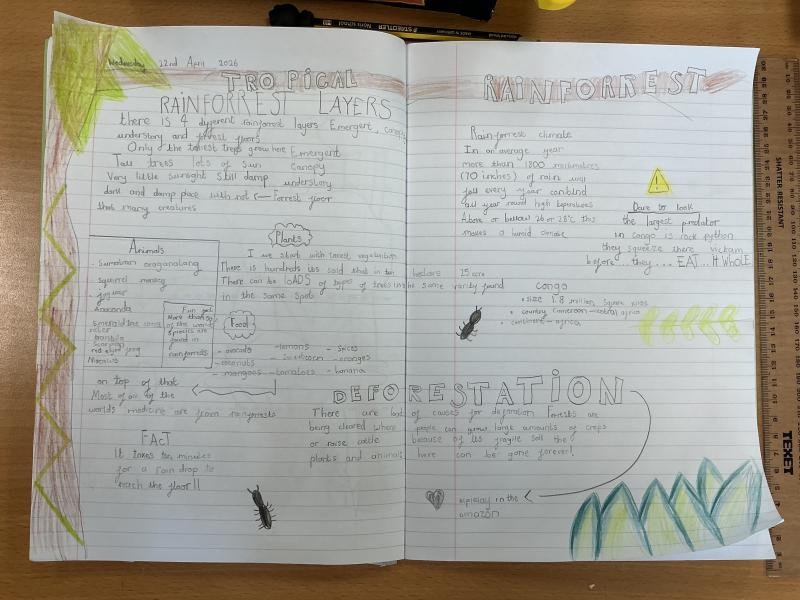 Wednesday 22nd April 2026
TROPICAL RAINFORREST
RAINFORREST LAYERS
there is 4 different rainforrest layers Emergent, canopy
understory and forrest floors
Only the tallest trees grow here Emergent
Tall trees lots of sun Canopy
Very little sunlight still damp understory
dark and damp place with not Forrest floor
that many creatures
Plants
I we start with forrest vegetation
There is hundreds
There can be LOADS of types of trees in the same varity found
in the same spots
Animals
Sumatran orangatang
squirrel monkey
jaguar
Anaconda
Emerald tree
red eyed frog
Fun fact
More than
of the world
species are
found in
rainforrests
Food
- avocado - lemons - spices
- coconuts - sweetcorn - oranges
- mangoes - tomatoes - banana
on top of that
Most of all of the
worlds medicine are from rainforrests
FAcT
It takes ten minutes
for a rain drop to
reach the floor!!
Rainforrest climate
In an average year
more than 1800 millimatres
(70 inches) of rain will
fall every year combind
all year round high temperatures
Above or bellow 26 or 28°c this
makes a humid climate
Dare to look
the largest predator
in congo is rock python
they squeeze there vickam
before... they.... EAT... IT WHOLE
Congo
• size 1.8 million square
• country Cameroon - central africa
• continent - africa
DEFORESTATION
There are lots of causes for Forrests are
being cleared where people can grow large amounts of crops
or raise cattle because of its fragile soil the
plants and animals here can be gone forever!
in the
amazon
Noris school
STAEDTLER
SHATTER RESISTANT
TEXET